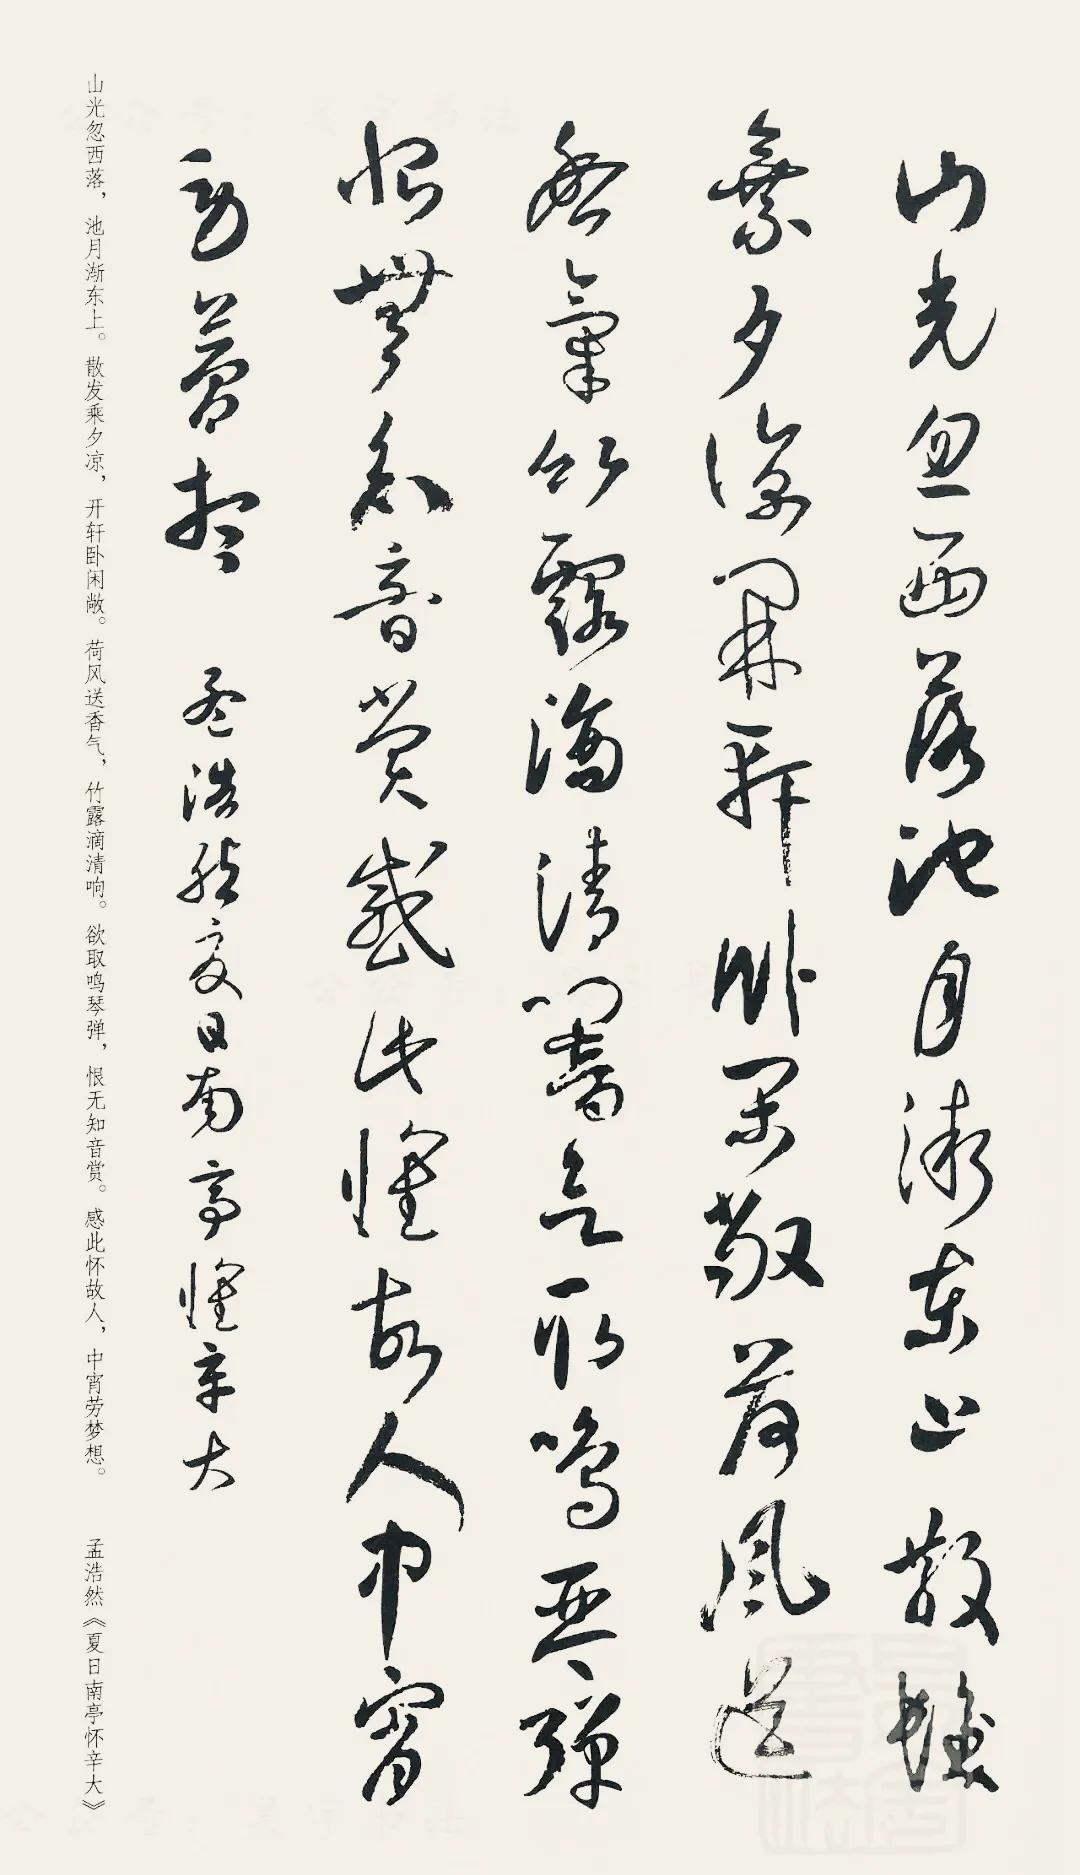 山光忽西落池月渐东上散发
乘夕凉开轩卧闲敞荷风送
香气竹露滴清响欲取鸣琴弹
恨无知音赏感此怀故人中宵
劳梦想 孟浩然夏日南亭怀辛大
山光忽西落，池月渐东上。散发乘夕凉，开轩卧闲敞。荷风送香气，竹露滴清响。欲取鸣琴弹，恨无知音赏。感此怀故人，中宵劳梦想。 孟浩然《夏日南亭怀辛大》